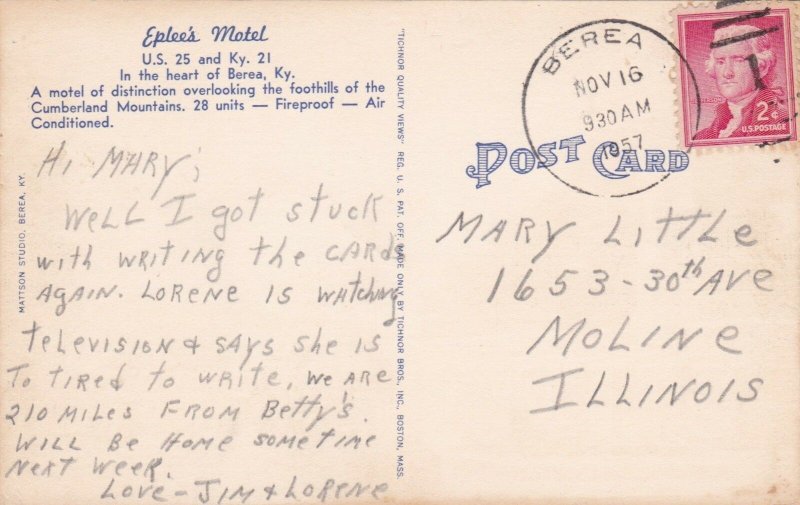 Eplee's Motel
U.S. 25 and Ky. 21
In the heart of Berea, Ky.
A motel of distinction overlooking the foothills of the
Cumberland Mountains. 28 units — Fireproof — Air
Conditioned.
Hi MARY;
Well I got stuck
with writing the CARDs
AGAIN. LORENE IS WATCHING
television & SAYS she is
To tired to write, we ARE
210 MILES FROM Betty's.
WILL Be HOME sometime
Next Week.
Love - Jim & LORENE
MATTSON STUDIO, BEREA, KY.
"TICHNOR QUALITY VIEWS" REG. U. S. PAT. OFF. MADE ONLY BY TICHNOR BROS., INC., BOSTON, MASS.
BEREA
NOV 16
930 AM
1957
1
2¢
U.S. POSTAGE
POST CARD
MARY Little
1653 - 30th AVE
MOLINE
ILLINOIS